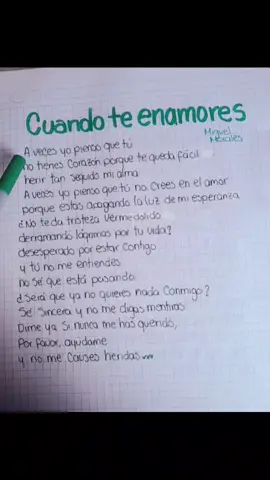 Cuando te enamores
Miguel Morales
A veces yo pienso que tú
no tienes Corazón porque te queda fácil
herir tan seguido mi alma
A veces yo pienso que tú no crees en el amor
porque estas apagando la luz de mi esperanza
¿No te da tristeza verme dolido
derramando lágrimas por tu vida?
desesperado por estar Contigo
y tú no me entiendes
no sé que está pasando
¿Será que ya no quieres nada Conmigo?
Sé Sincera y no me digas mentiras
Dime ya Si nunca me has querido,
Por favor, ayúdame
y no me Causes heridas